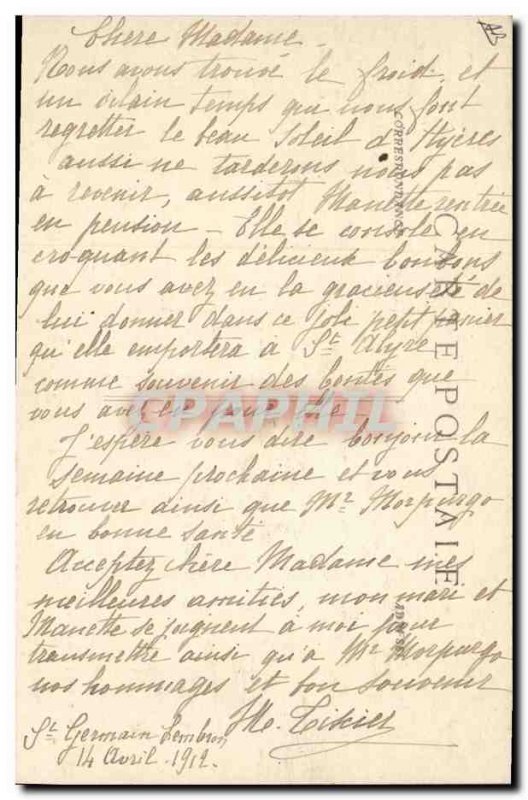 Chère Madame -
Nous avons trouvé le froid, et
un vilain temps qui nous font
regretter le beau soleil d'Hyères
aussi ne tarderons nous pas
à revenir, aussitôt Manette rentrée
en pension - Elle se console en
croquant les délicieux bonbons
que vous avez eu la gracieuseté de
lui donner dans ce joli petit panier
qu'elle emportera à St Alyre
comme souvenir des bontés que
vous avez eu pour elle
J'espère vous dire bonjour la
semaine prochaine et vous
retrouver ainsi que Mr Morpurgo
en bonne santé
Acceptez chère Madame mes
meilleures amitiés, mon mari et
Manette se joignent à moi pour
transmettre ainsi qu'à Mr Morpurgo
nos hommages et bon souvenir
St Germain Lembron
14 Avril 1912.
CARTE POSTALE
CORRESPONDANCE
CPAPHIL